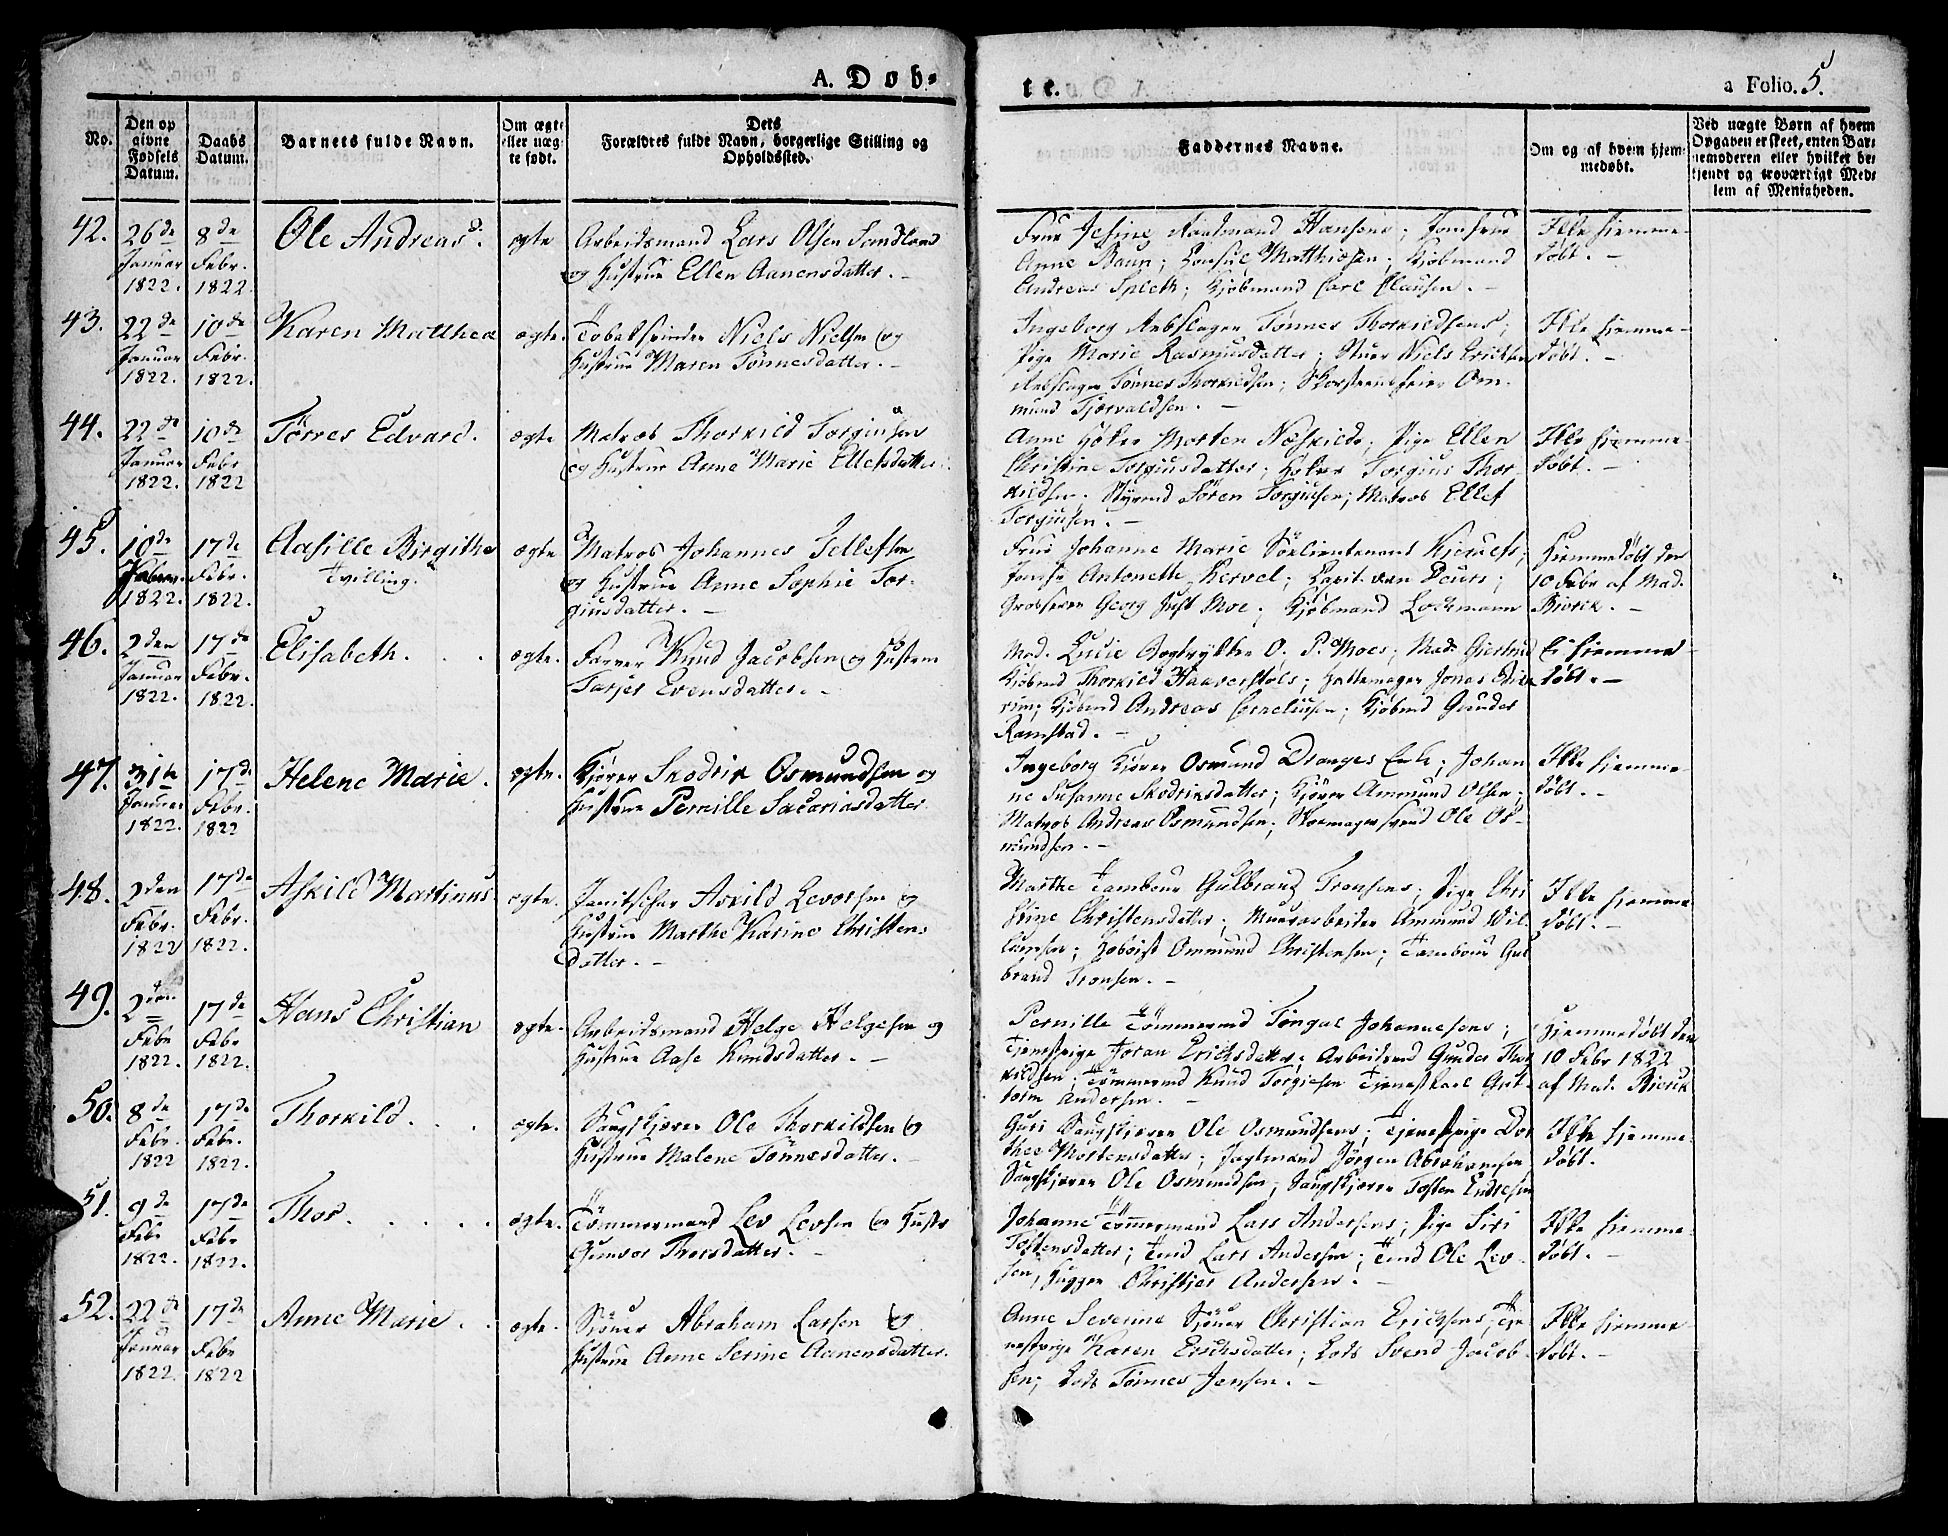 A. Døb-
te.
a Folio. 5.
No.
Den op
givne
Fødsels
Datum.
Daabs
Datum.
Barnets fulde Navn.
Om ægte
eller uæg-
te født.
Dets
Forældres fulde Navn, borgerlige Stilling og
Opholdssted.
Faddernes Navne.
Om og af hvem hjem-
medøbt.
Ved uægte Børn af hvem
Opgaven er skeet, enten Bar-
nemoderen eller hvilket be-
kjendt og troværdigt Med-
lem af Menigheden.
42.
26de
Januar
1822.
8de
Febr.
1822
Ole Andreas.
ægte
Arbeidsmand Lars Olsen Sandland
og Hustrue Ellen Aanensdatter. -
Frue Jesine Raadmand Hansens; Jomfrue
Anne Baun; Consul Matthiesen; Kjöbmand
Andreas Spleth; Kjöbmand Carl Clausen. -
Ikke hiemme-
döbt. -
43.
22de
Januar
1822.
10de
Febr.
1822.
Karen Matthea
ægte.
Tobakspinder Niels Nielsen og
Hustrue Maren Tönnesdatter. -
Ingeborg Rebslager Tönnes Thorkildsens;
Pige Marie Rasmusdatter; Stuer Niels Ericksen
Rebslager Tönnes Thorkildsen; Skorsteensfeier Om-
mund Tjærvaldsen. -
Ikke hiemme-
döbt. -
44.
22de
Januar
1822.
10de
Febr
1822
Törres Edvard.
ægte
Matros Thorkild Torgiusen
og Hustrue Anne Marie Ellefsdatter.
Anne Höker Morten Næskilds; Pige Ellen
Christine Torgiusdatter; Höker Torgius Thor-
kildsen; Styrmd Sören Torgiusen; Matros Ellef
Torgiusen. -
Ikke hiemme-
döbt. -
45.
10de
Februar
1822.
17de
Febr.
1822.
Aasille Birgithe
Tvilling.
ægte
Matros Johannes Tellefsen
og Hustrue Anne Sophie Tor-
giusdatter. -
Frue Johanne Marie Sölieutenant
Jomfr Antonette Kervel; Capit. van Deurs;
Grosserer Georg Just Moe; Kjöbmand Lochmann
Hiemmedöbt den
10 Febr af Mad.
Biörck. -
46.
2den
Januar
1822.
17de
Febr.
1822.
Elisabeth.
ægte.
Farver Knud Jacobsen og Hustrue
Tarjer Evensdatter. -
Mad. Lucie Bogtrykker O. P. Moes; Mad. Giertrud
Kjöbmd Thorkild Haaverstöls; Hattemager Jonas
Kjöbmd Andreas Corneliusen; Kjöbmd Gunder
Ramstad. -
Ei hiemme-
döbt. -
47.
31te
Januar
1822.
17de
Febr.
1822
Helene Marie.
ægte.
Kjörer Skodrik Osmundsen og
Hustrue Pernille Sacariasdatter
Ingeborg Kjörer Osmund Dranges Enke; Johan-
ne Susanne Skodriksdatter; Kjörer Ammund Olsen;
Matros Andreas Osmundsen; Skomagersvend Ole Os-
mundsen. -
Ikke hiemme-
döbt. -
48.
2den
Febr.
1822
17de
Febr.
1822.
Askild Martinus
ægte.
Janitschar Askild Levorsen og
Hustrue Marthe Karine Christens
datter. -
Marthe Tambour Gulbrand Tronsens; Pige Chri-
stine Christensdatter; Muurarbeider Ammund Wil-
lumsen; Hoboist Ommund Christensen; Tambour Gul-
brand Tronsen. -
Ikke hiemme-
döbt. -
49.
2den
Febr
1822.
17de
Febr
1822.
Hans Christian
ægte.
Arbeidsmand Helge Helgesen og
Hustrue Aase Knudsdatter. -
Pernille Tömmermd Johannesens;
Tjenestpige Joran Ericksdatter; Arbeidsmd Gunder Thor-
kildsen; Tömmermd Knud Torgiesen Tjenestkarl Gut-
torm Andersen. -
Hiemmedöbt den
10 Febr 1822
af Mad. Biörck
50.
8de
Febr.
1822
17de
Febr.
1822.
Thorkild.
ægte.
Sangskjærer Ole Thorkildsen og
Hustrue Malene Tönnesdatter. -
Guri Sangskjærer Ole Osmundsens; Tjenestpige Dor-
thee Mortensdatter; Jagtmand Jörgen Abrahamsen
Sangskjærer Ole Osmundsen; Sangskjærer Tosten Endresen
Ikke hjemme-
döbt.
51.
9de
Febr
1822.
17de
Febr
1822.
Thor.
ægte.
Tömmermand Lev Levsen og Hustr
Gunvor Thorsdatter. -
Johanne Tömmermand Lars Andersens; Pige Siri
Tostensdatter; Tmd Lars Andersen; Tmd Ole Lev-
sen, Hugger Christen Andersen. -
Ikke hiemme-
döbt. -
52.
22de
Januar
1822.
17de
Febr
1822
Anne Marie.
ægte.
Sjöuer Abraham Larsen og
Hustrue Anne Serine Aanensdatter.
Anne Severine Sjöuer Christian Ericksens, Tje-
nestpige Karen Ericksdatter; Lods Svend Jacob-
sen; Lods Tönnes Jensen. -
Ikke hiemme
döbt. -